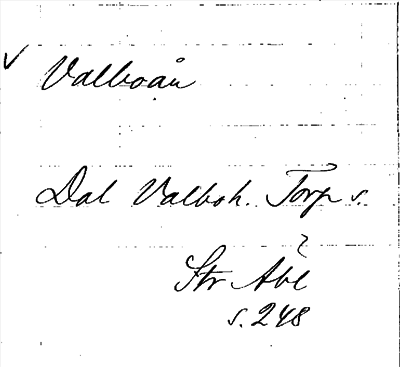 ✓ Valboån
Dal Valboh. Torp s.
Str Abl
s. 248